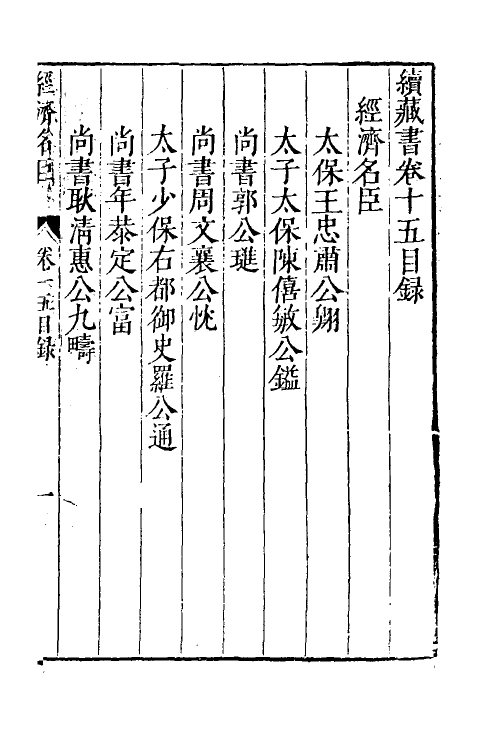 續藏書卷十五目録
經濟名臣
太保王忠肅公翺
太子太保陳僖敏公鎰
尚書郭公璡
尚書周文襄公忱
太子少保右都御史羅公通
尚書年恭定公富
尚書耿清惠公九疇
經濟名臣
卷十五目録
一